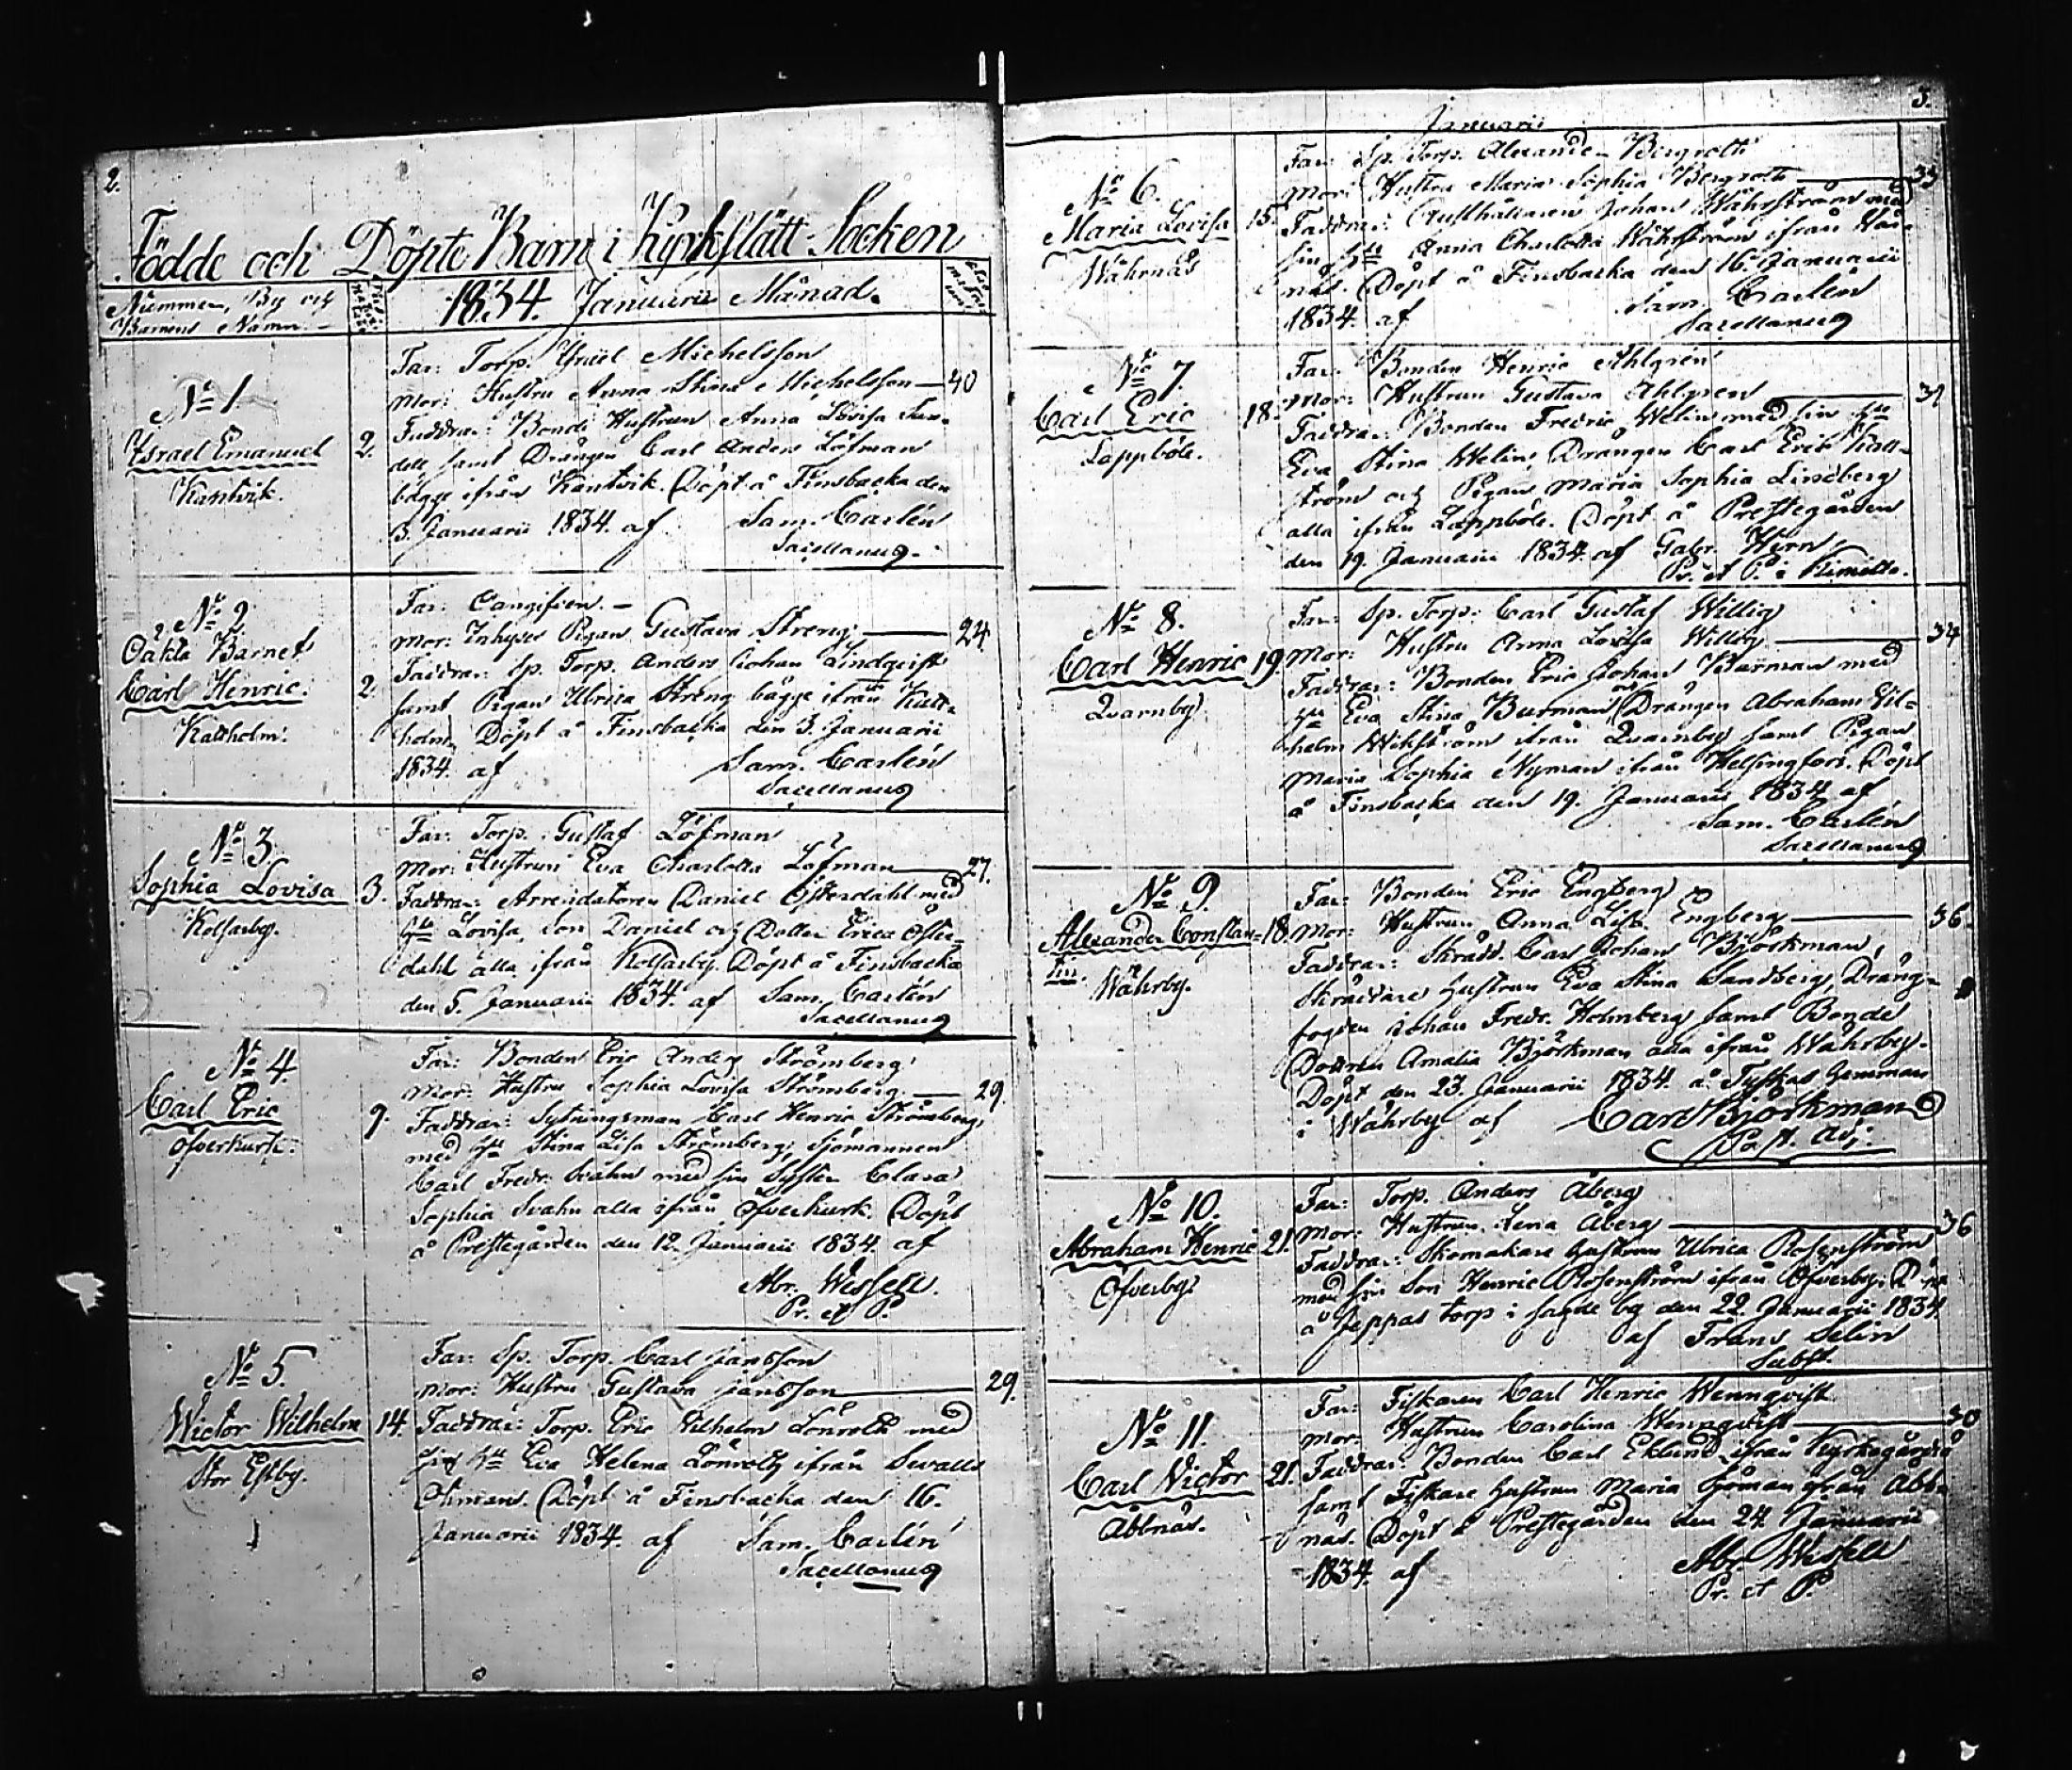 2.
Födde och Döpte Barn i Kyrkslätt Socken
Nummer, By och
Barnens Namn.
1834. Januarii Månad.
No 1.
Israel Emanuel
Kantvik.
2.
Far: Torp. Israel Michelsson
Mor: Hustru Anna Stina Michelsson — 40
Faddrar: Bonde Hustrun Anna Lovisa Sun-
dell samt Drängen Carl Anders Löfman
bägge ifrån Kantvik. Döpt å Finsbacka den
3. Januarii 1834. af Sam. Carlén
Sacellanus.
No 2.
Oäkta Barnet
Carl Henric.
Kaldholm.
2.
Far: Cangifven. —
Mor: Inhyses Pigan Gustava Streng — 24.
Faddrar: Sp. Torp. Anders Johan Lindqvist
samt Pigan Ulrica Streng bägge ifrån Kald-
holm. Döpt å Finsbacka den 3. Januarii
1834. af Sam. Carlén
Sacellanus
No 3.
Sophia Lovisa
Kolsarby.
3.
Far: Torp. Gustaf Löfman
Mor: Hustrun Eva Charlotta Löfman — 27.
Faddrar: Arrendatoren Daniel Österdahl med
Hu Lovisa, Son Daniel och Dotter Erica Öster-
dahl alla ifrån Kolsarby. Döpt å Finsbacka
den 5. Januarii 1834. af Sam. Carlén
Sacellanus
No 4.
Carl Eric
Öfverkurk.
9.
Far: Bonden Eric Anders Strömberg
Mor: Hustru Sophia Lovisa Strömberg — 29.
Faddrar: Sytningsman Carl Henric Strömberg
med Hu Stina Lisa Strömberg, Sjömannen
Carl Fredr. Svahn med sin Syster Clara
Sophia Svahn alla ifrån Öfverkurk. Döpt
å Prestegården den 12. Januarii 1834. af
Abr. Wessell.
Pr. et P.
No 5.
Wictor Wilhelm
Stor Estby.
14.
Far: Sp. Torp. Carl Jansson
Mor: Hustru Gustava Jansson — 29.
Faddrar: Torp. Eric Wilhelm Lönroth med
sin Hu Eva Helena Lönroth ifrån Sevalls
Ohmans. Döpt å Finsbacka den 16.
Januarii 1834. af Sam. Carlén
Sacellanus
3.
Januarii
No 6.
Maria Lovisa
Wåhrnäs
15.
Far: Sp. Torp. Alexander Bergroth
Mor: Hustru Maria Sophia Bergroth — 33
Faddrar: Rusthållaren Johan Wåhrström med
sin Hu Anna Charlotta Wåhrström ifrån Wår-
näs. Döpt å Finsbacka den 16. Januarii
1834. af Sam. Carlén
Sacellanus
No 7.
Carl Eric
Lappböle.
18.
Far: Bonden Henric Ahlgrén
Mor: Hustrun Gustava Ahlgren — 31
Faddrar: Bonden Fredric Welin med sin Hu
Eva Stina Welin, Drängen Carl Eric
ström och Pigan Maria Sophia Lindberg
alla ifrån Lappböle. Döpt å Prestegården
den 19. Januarii 1834 af Gabr. Hirn
Pr. et P. i Kimitto.
No 8.
Carl Henric
Qvarnby.
19.
Far: Sp. Torp. Carl Gustaf Willig
Mor: Hustru Anna Lovisa Willig — 34
Faddrar: Bonden Eric Johan Burman med
Hu Eva Stina Burman, Drängen Abraham Vil-
helm Wikström ifrån Qvarnby samt Pigan
Maria Sophia Nyman ifrån Helsingfors. Döpt
å Finsbacka den 19. Januarii 1834 af
Sam. Carlén
Sacellanus
No 9.
Alexander Constan-
tin.
Wåhrby.
18.
Far: Bonden Eric Engberg
Mor: Hustrun Anna Lisa Engberg — 36.
Faddrar: Skrädd. Carl Johan Björkman,
Skräddare Hustrun Eva Stina Sandberg, Dräng-
fogden Johan Fredr. Holmberg samt Bonde
Dottren Amalia Björkman alla ifrån Wåhrby.
Döpt den 23. Januarii 1834. å Tyskas Hemman
i Wåhrby af Carl Björkman
Past. Adj:
No 10.
Abraham Henric
Öfverby.
21.
Far: Torp. Anders Åberg
Mor: Hustrun Lena Åberg — 36
Faddrar: Skomakare Hustrun Ulrica Rosenström
med sin Son Henric Rosenström ifrån Öfverby. Döpt
å Jeppas torp i sagde by den 22. Januarii 1834.
af Frans Selin
Subst.
No 11.
Carl Victor
Åbbnäs.
21.
Far: Fiskaren Carl Henric Wennqvist
Mor: Hustrun Carolina Wennqvist — 30
Faddrar: Bonden Carl Eklund ifrån Kyrkogård
samt Fiskare Hustrun Maria Sjöman ifrån Åbb-
näs. Döpt å Prestegården den 24. Januarii
1834. af Abr. Wessell
Pr. et P.